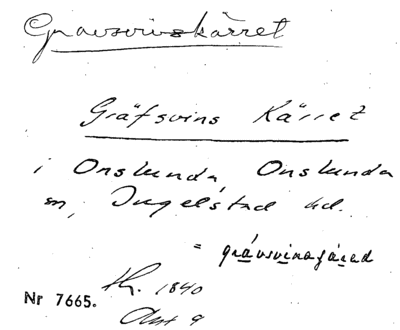 Gravsvinskärret
Gräfsvins Kärret
i Onslunda, Onslunda
sn, Ingelstad hd.
= grávsvinafárad
th. 1840
Nr 7665.
Akt 9